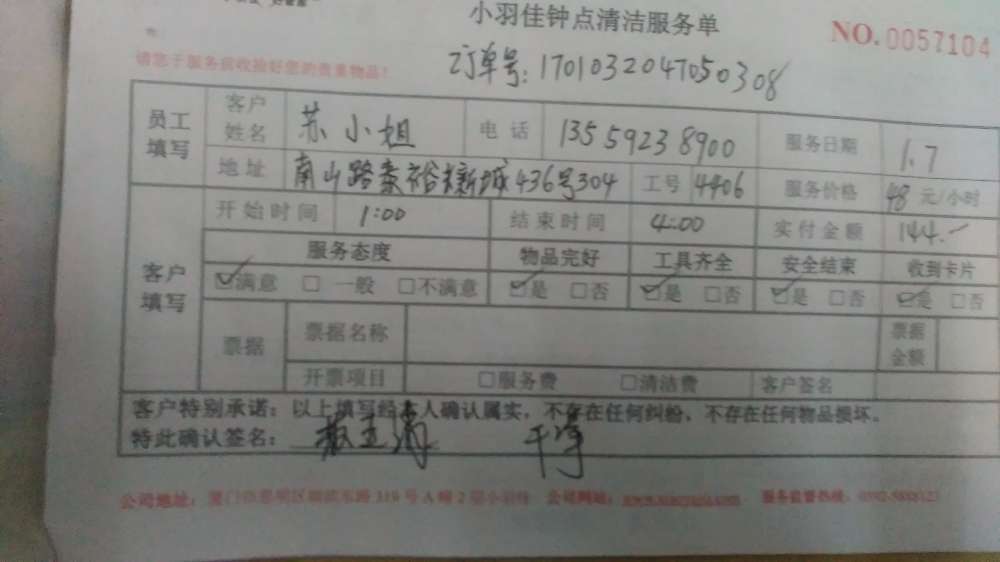 小羽佳钟点清洁服务单
NO. 0057104
请您于服务前收捡好您的贵重物品！
订单号：1701032047050308
员工填写 客户姓名 苏小姐 电话 13559238900 服务日期 1.7
地址 南山路泰裕新城436号304 工号 4406 服务价格 48 元/小时
客户填写 开始时间 1:00 结束时间 4:00 实付金额 144.-
服务态度 物品完好 工具齐全 安全结束 收到卡片
☑满意 □一般 □不满意 ☑是 □否 ☑是 □否 ☑是 □否 ☑是 □否
票据 票据名称 票据金额
开票项目 □服务费 □清洁费 客户签名
客户特别承诺：以上填写经本人确认属实，不存在任何纠纷，不存在任何物品损坏。
特此确认签名： 干净
公司地址：厦门市思明区 319号A幢2层小羽佳 公司网站： 服务监督热线：